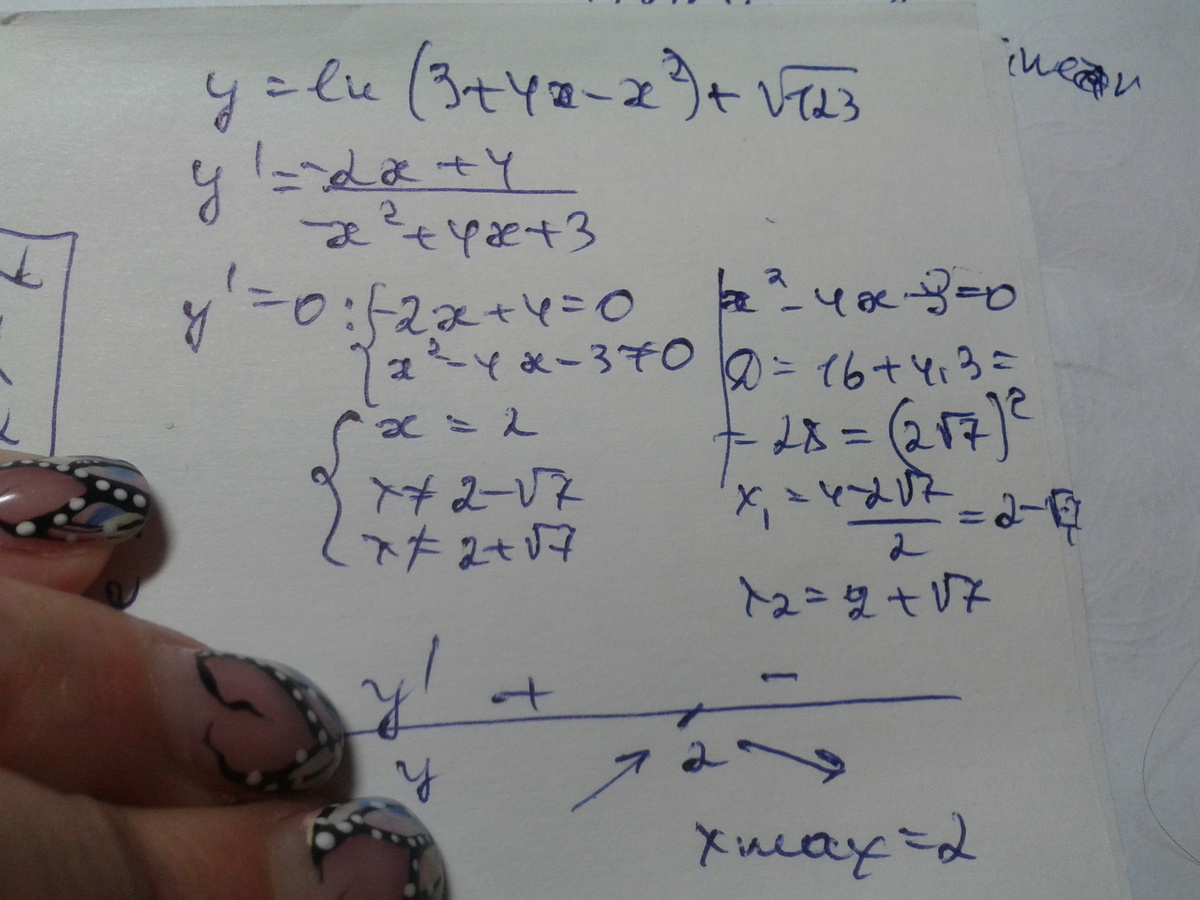 y = ln (3+4x-x²) + √123
y' = -2x+4 / -x²+4x+3
y' = 0 : { -2x+4=0
x²-4x-3≠0
{ x = 2
x ≠ 2-√7
x ≠ 2+√7
x²-4x-3=0
D = 16+4·3=
= 28 = (2√7)²
x₁ = 4-2√7 / 2 = 2-√7
x₂ = 2+√7
y' + -
y 2
xmax=2